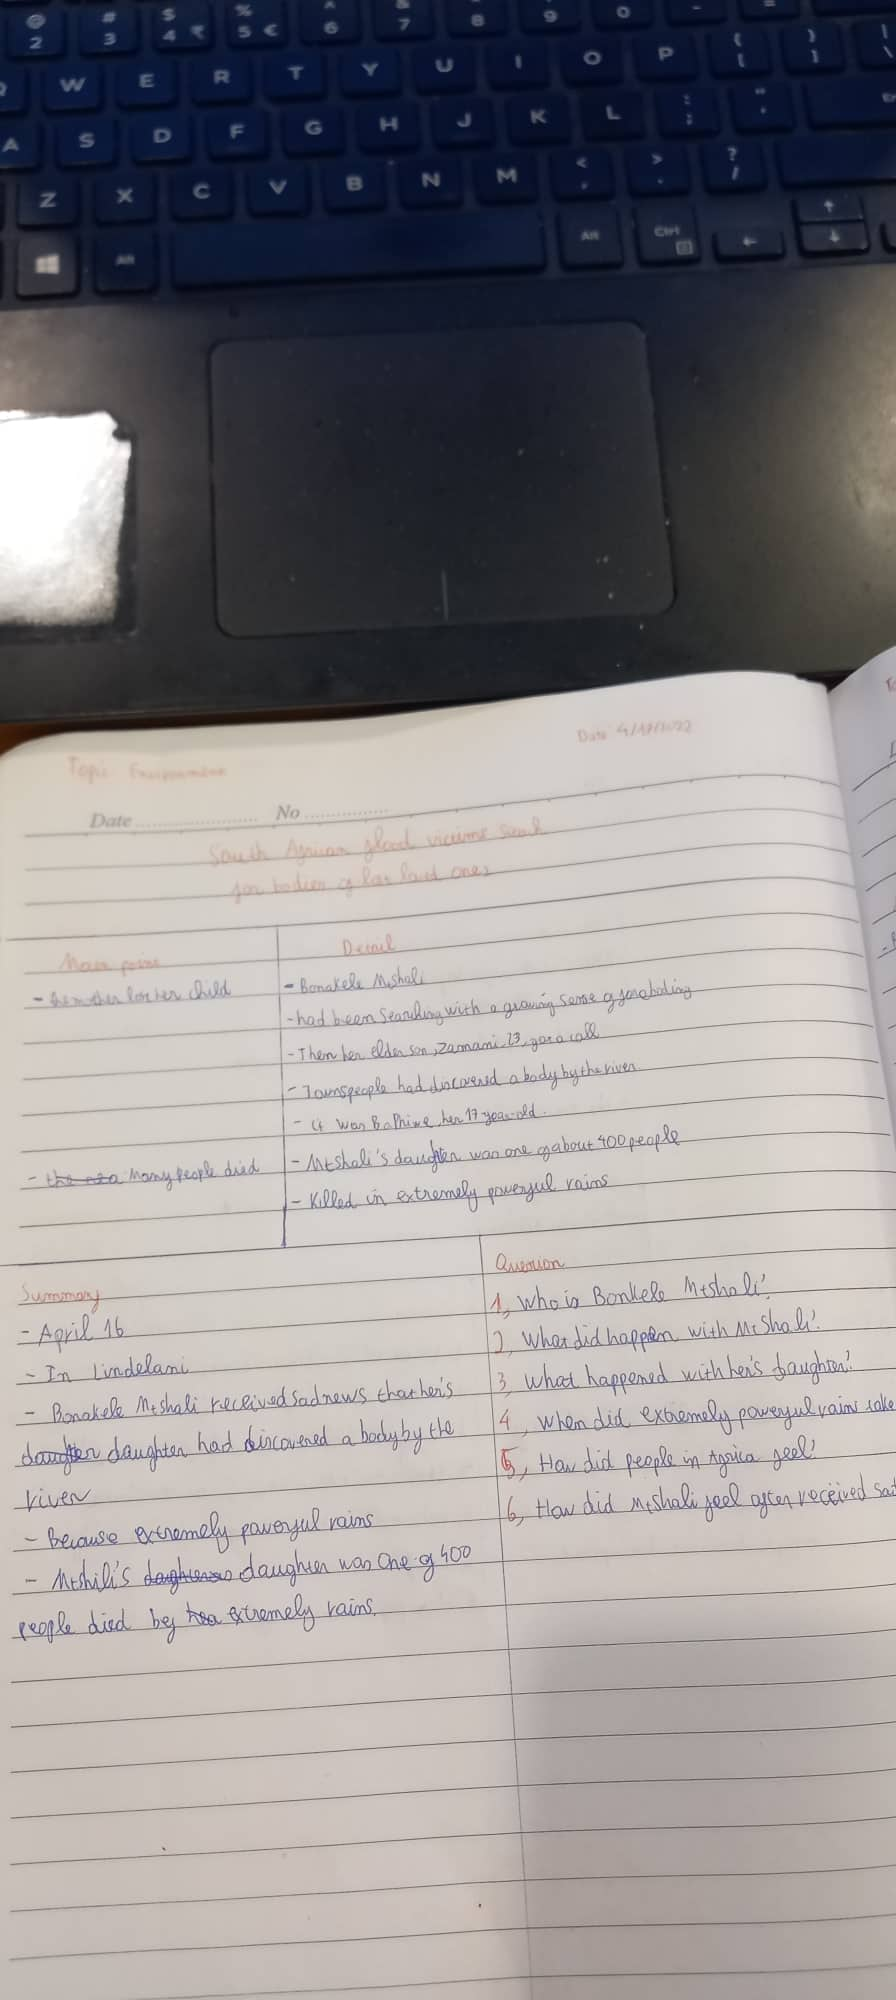 @ # $ % ^ & 
2 3 4 ₹ 5 € 6 7 8 9 0 -
W E R T Y U I O P { [ } ]
A S D F G H J K L : ; " '
Z X C V B N M < , > . ? /
Alt Alt Ctrl
Topic Environment
Date 4/17/2022
Date No
South African flood victims
for bodies of
Main point
Detail
- lost her child
- Bonakele Mtshali
- had been searching with a growing sense of foreboding
- Then her elder son, Zamani, 23, got a call
- Townspeople had discovered a body by the river
- It was Baphiwe, her 17 year-old.
- the Many people died
- Mtshali's daughter was one of about 400 people
- Killed in extremely powerful rains
Summary
Question
- April 16
- In Lindelani
- Bonakele Mtshali received sad news that her's
daughter daughter had discovered a body by the
river
- Because extremely powerful rains
- Mtshili's daughter was one of 400
people died by extremely rains.
1, Who is Bonkele Mtshali?
2, What did happen with Mtshali?
3, What happened with her's daughter?
4, When did extremely powerful rains take
5, How did people in Africa feel?
6, How did Mtshali feel after received sad